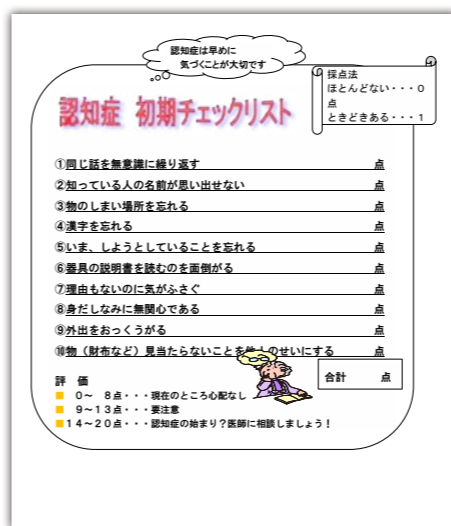 認知症は早めに
気づくことが大切です
採点法
ほとんどない・・・0
点
ときどきある・・・1
認知症 初期チェックリスト
①同じ話を無意識に繰り返す 点
②知っている人の名前が思い出せない 点
③物のしまい場所を忘れる 点
④漢字を忘れる 点
⑤いま、しようとしていることを忘れる 点
⑥器具の説明書を読むのを面倒がる 点
⑦理由もないのに気がふさぐ 点
⑧身だしなみに無関心である 点
⑨外出をおっくうがる 点
⑩物（財布など）見当たらないことを他人のせいにする 点
合計 点
評 価
0～ 8点・・・現在のところ心配なし
9～13点・・・要注意
14～20点・・・認知症の始まり？医師に相談しましょう！